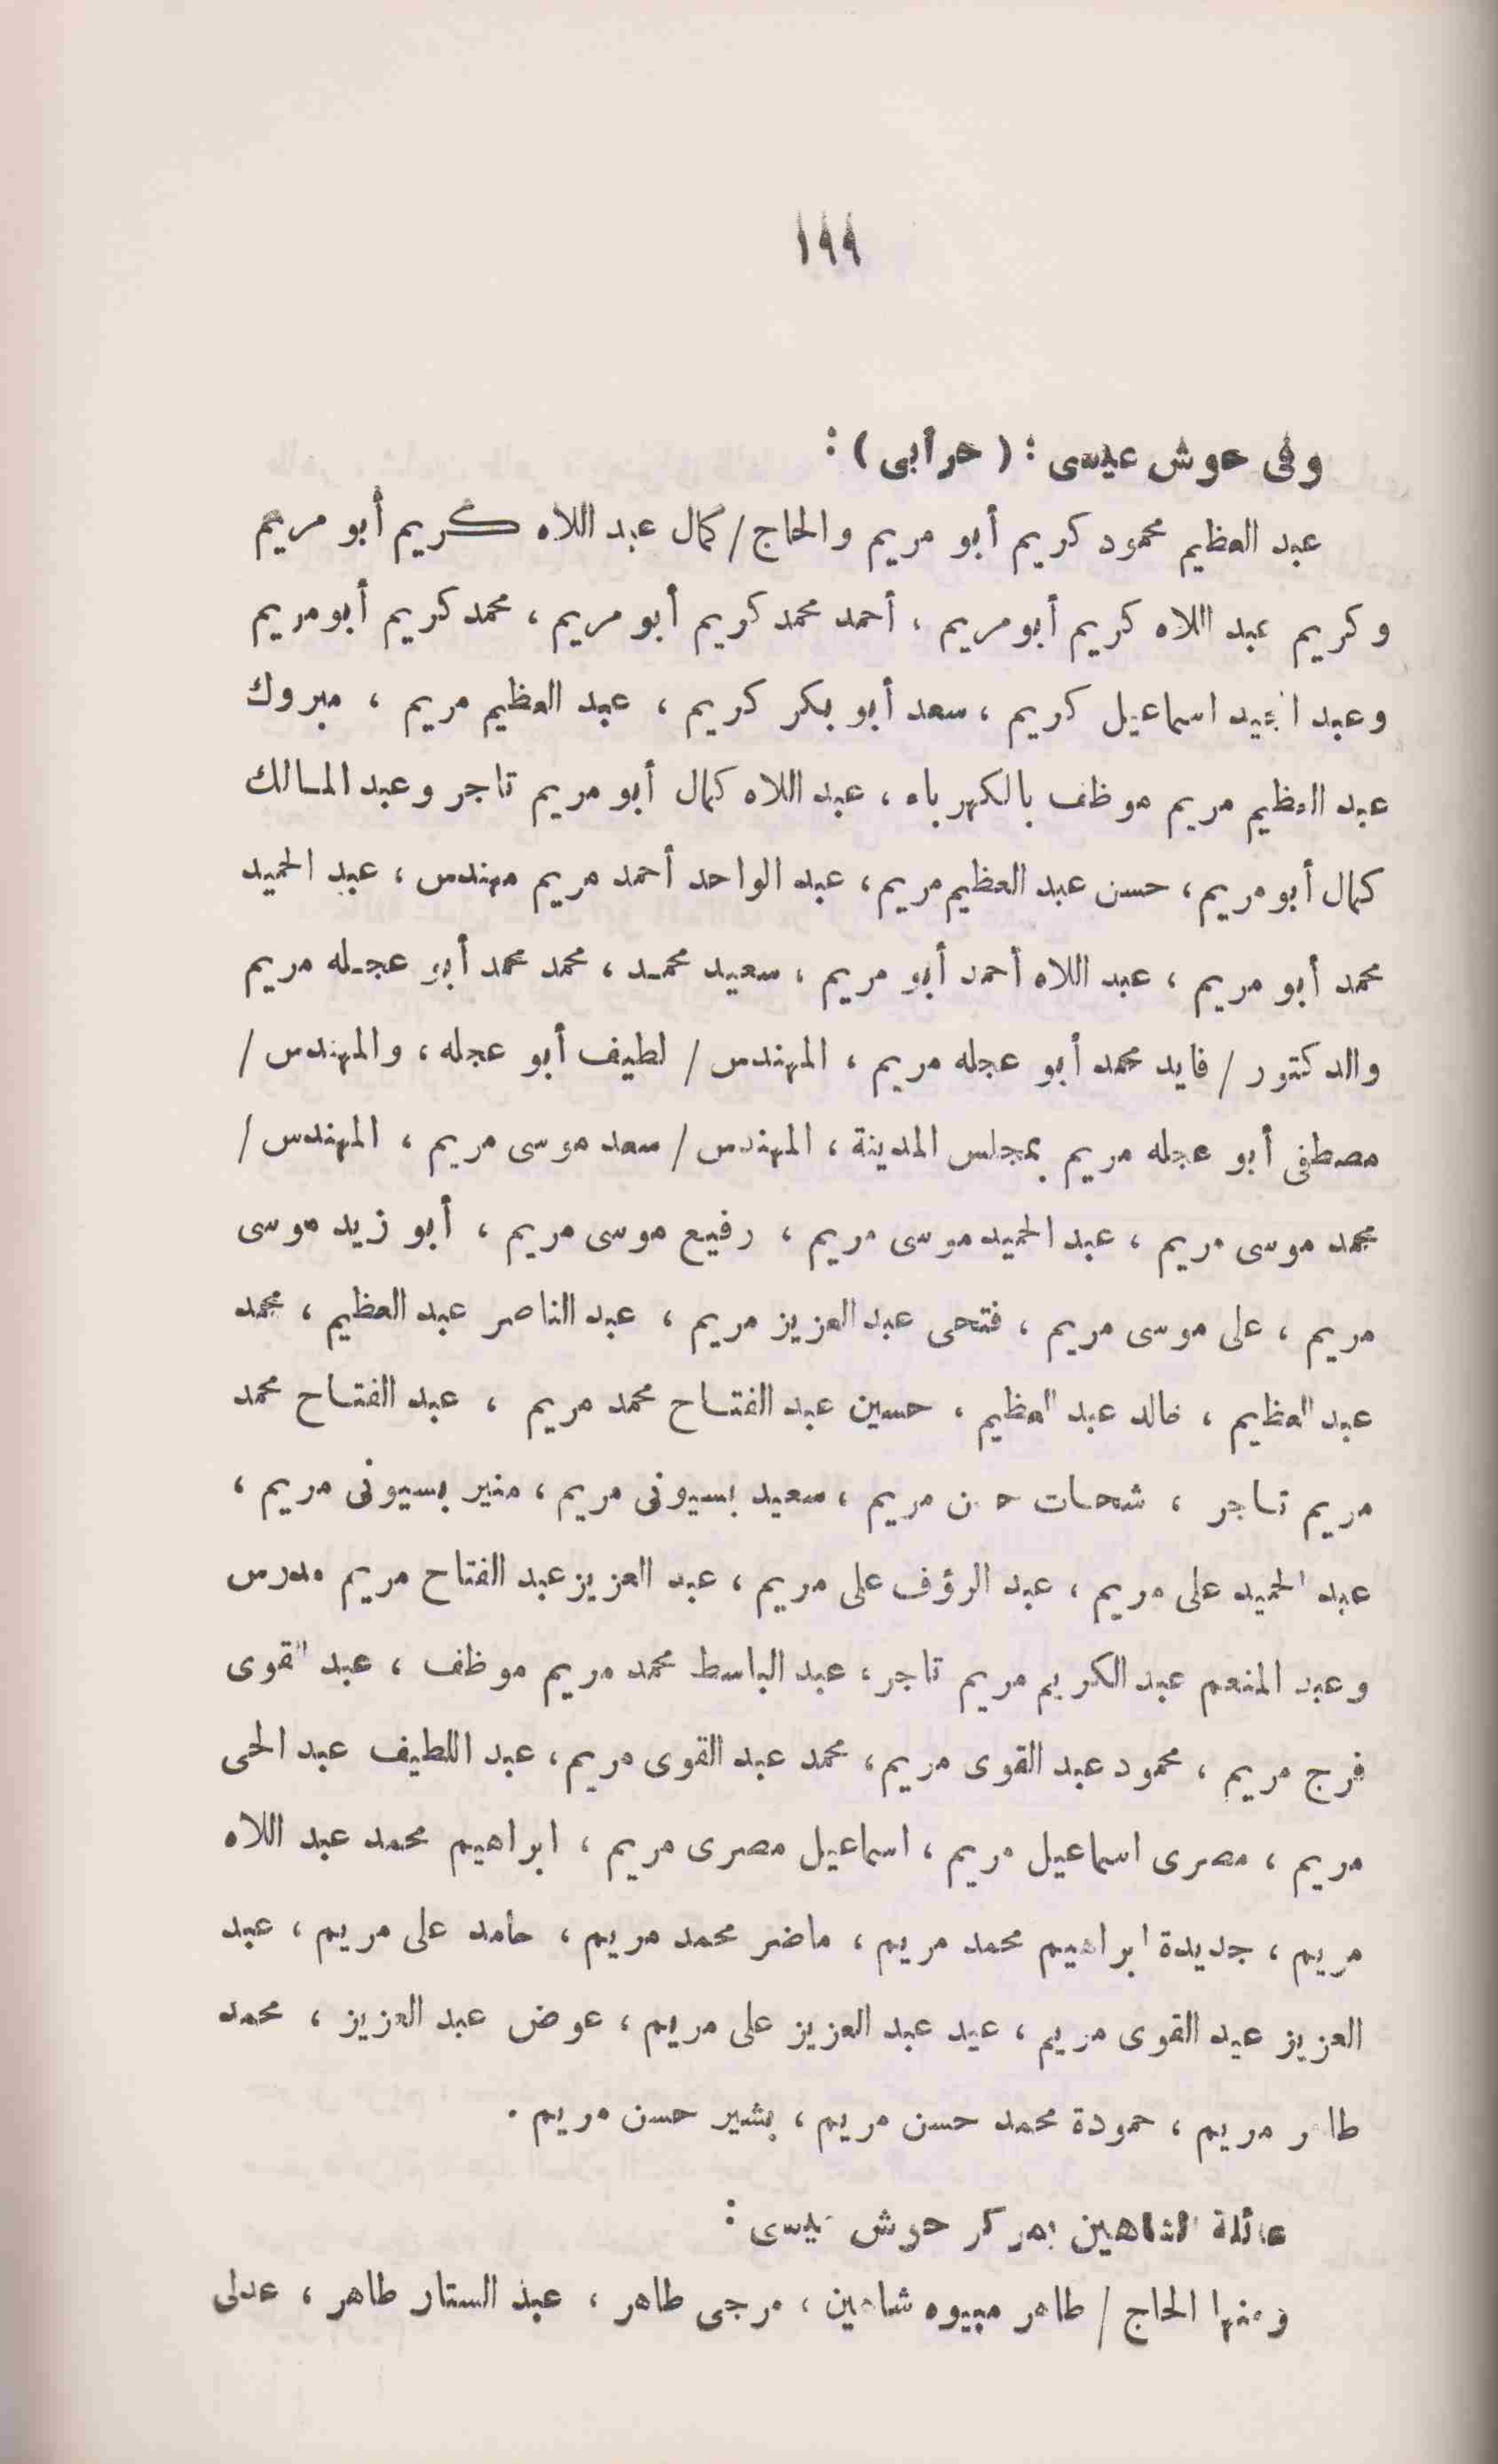 ١٩٩
وفى حوش عيسى : ( حرابى ) :
عبد العظيم محمود كريم أبو مريم والحاج / كمال عبد اللاه كريم أبو مريم
وكريم عبد اللاه كريم أبو مريم ، أحمد محمد كريم أبو مريم ، محمد كريم أبو مريم
وعبد المجيد اسماعيل كريم ، سعد أبو بكر كريم ، عبد العظيم مريم ، مبروك
عبد العظيم مريم موظف بالكهرباء ، عبد اللاه كمال أبو مريم تاجر وعبد المالك
كمال أبو مريم ، حسن عبد العظيم مريم ، عبد الواحد أحمد مريم مهندس ، عبد الحميد
محمد أبو مريم ، عبد اللاه أحمد أبو مريم ، سعيد محمد ، محمد محمد أبو عجله مريم
والدكتور / فايد محمد أبو عجله مريم ، المهندس / لطيف أبو عجله ، والمهندس /
مصطفى أبو عجله مريم بمجلس المدينة ، المهندس / سعد موسى مريم ، المهندس /
محمد موسى مريم ، عبد الحميد موسى مريم ، رفيع موسى مريم ، أبو زيد موسى
مريم ، على موسى مريم ، فتحى عبد العزيز مريم ، عبد الناصر عبد العظيم ، محمد
عبد العظيم ، خالد عبد العظيم ، حسين عبد الفتاح محمد مريم ، عبد الفتاح محمد
مريم تاجر ، شحات حسن مريم ، سعيد بسيونى مريم ، منير بسيونى مريم ،
عبد الحميد على مريم ، عبد الرؤف على مريم ، عبد العزيز عبد الفتاح مريم مدرس
وعبد المنعم عبد الكريم مريم تاجر ، عبد الباسط محمد مريم موظف ، عبد القوى
فرج مريم ، محمود عبد القوى مريم ، محمد عبد القوى مريم ، عبد اللطيف عبد الحى
مريم ، مصرى اسماعيل مريم ، اسماعيل مصرى مريم ، ابراهيم محمد عبد اللاه
مريم ، جديدة ابراهيم محمد مريم ، ماضر محمد مريم ، حامد على مريم ، عبد
العزيز عبد القوى مريم ، عيد عبد العزيز على مريم ، عوض عبد العزيز ، محمد
طاهر مريم ، حمودة محمد حسن مريم ، بشير حسن مريم .
عائلة الشاهين بمركز حوش عيسى :
ومنها الحاج / طاهر مبيوه شاهين ، مرجى طاهر ، عبد الستار طاهر ، عدلى